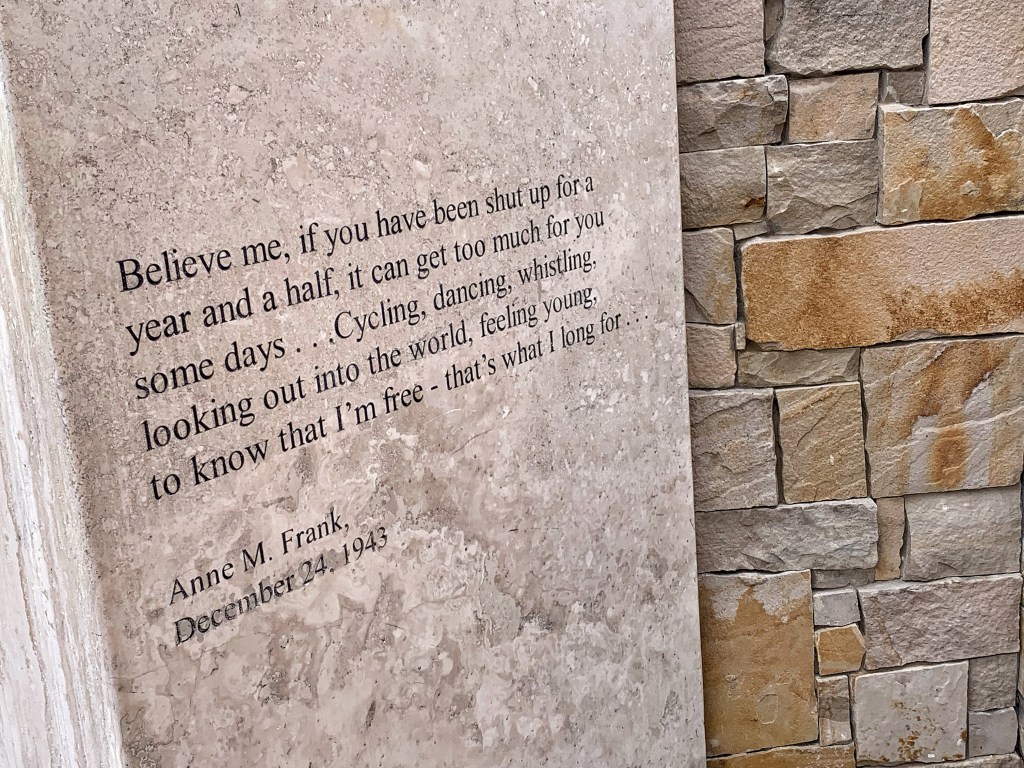 Believe me, if you have been shut up for a
year and a half, it can get too much for you
some days . . .Cycling, dancing, whistling,
looking out into the world, feeling young,
to know that I'm free - that's what I long for . . .
Anne M. Frank,
December 24, 1943